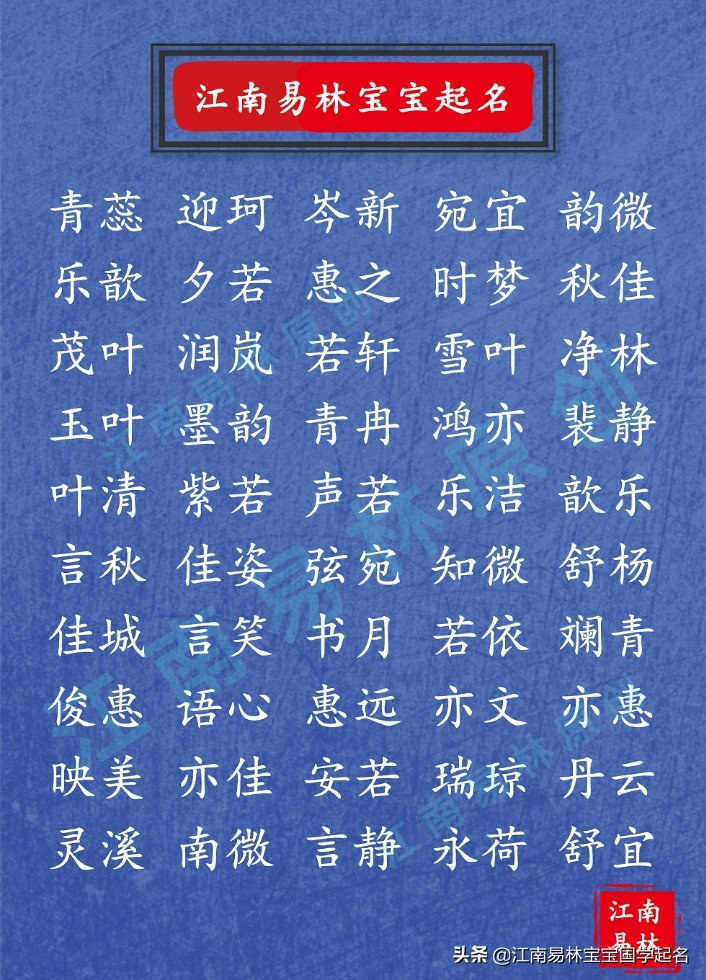 江南易林宝宝起名
青蕊 迎珂 岑新 宛宜 韵微
乐歆 夕若 惠之 时梦 秋佳
茂叶 润岚 若轩 雪叶 净林
玉叶 墨韵 青冉 鸿亦 裴静
叶清 紫若 声若 乐洁 歆乐
言秋 佳姿 弦宛 知微 舒杨
佳城 言笑 书月 若依 斓青
俊惠 语心 惠远 亦文 亦惠
映美 亦佳 安若 瑞琼 丹云
灵溪 南微 言静 永荷 舒宜
江南易林原创
江南易林原创
江南易林原创
江南
易林
头条 @江南易林宝宝国学起名